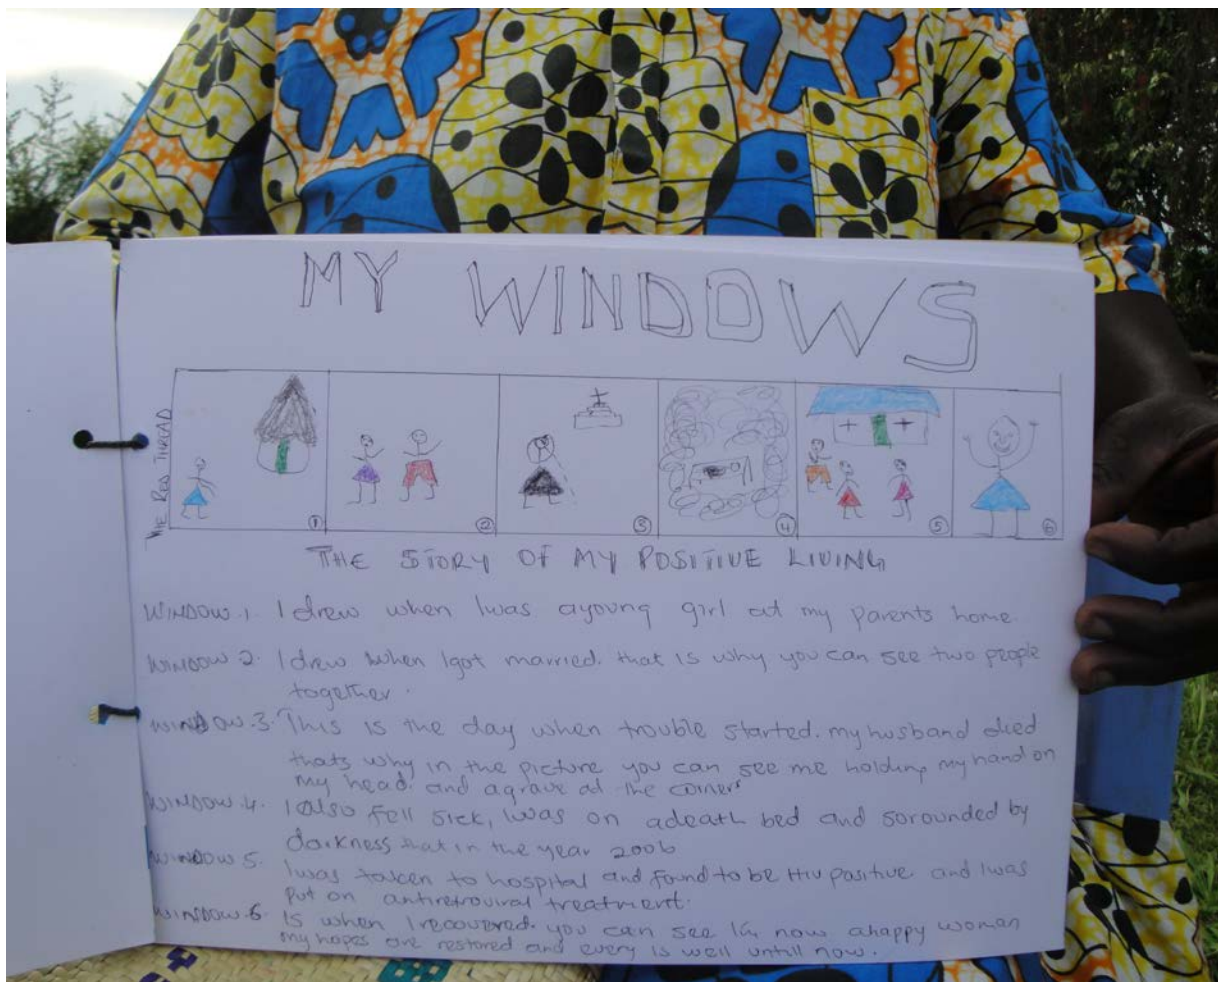 MY WINDOWS
THE RED THREAD
1
2
3
4
5
6
THE STORY OF MY POSITIVE LIVING
WINDOW.1. I drew when I was a young girl at my parents home.
WINDOW 2. I drew when I got married. that is why you can see two people
together.
WINDOW.3. This is the day when trouble started. my husband died
thats why in the picture you can see me holding my hand on
my head. and a grave at the corners
WINDOW.4. I also fell sick, I was on a death bed and sorounded by
darkness that in the year 2006
WINDOW 5. I was taken to hospital and found to be HIV positive and I was
put on antiretroviral treatment.
WINDOW.6. Is when I recovered. you can see I'm now a happy woman
my hopes are restored and every is well untill now.